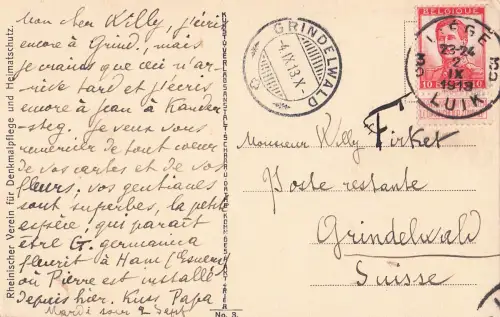 Mon cher Willy, j'écris
encore à Grind., mais
je crains que ceci n'ar-
rive tard et j'écris
encore à Jean à Kander-
steg. Je veux vous
remercier de tout coeur
de vos cartes et de vos
fleurs; vos gentianes
sont superbes, la petite
espèce, qui paraît
être G. germanica
fleurit à Ham (Esneux)
où Pierre est installé
depuis hier. Kuss Papa
Mardi soir 2 Sept
Rheinischer Verein für Denkmalpflege und Heimatschutz.
No. 3.
GRINDELWALD
-4.IX.13.X-
BELGIQUE
10 10
LIÈGE
23-24
2
IX
1913
LUIK
3D 3D
T
Monsieur Willy Firket
Poste restante
Grindelwald
Suisse